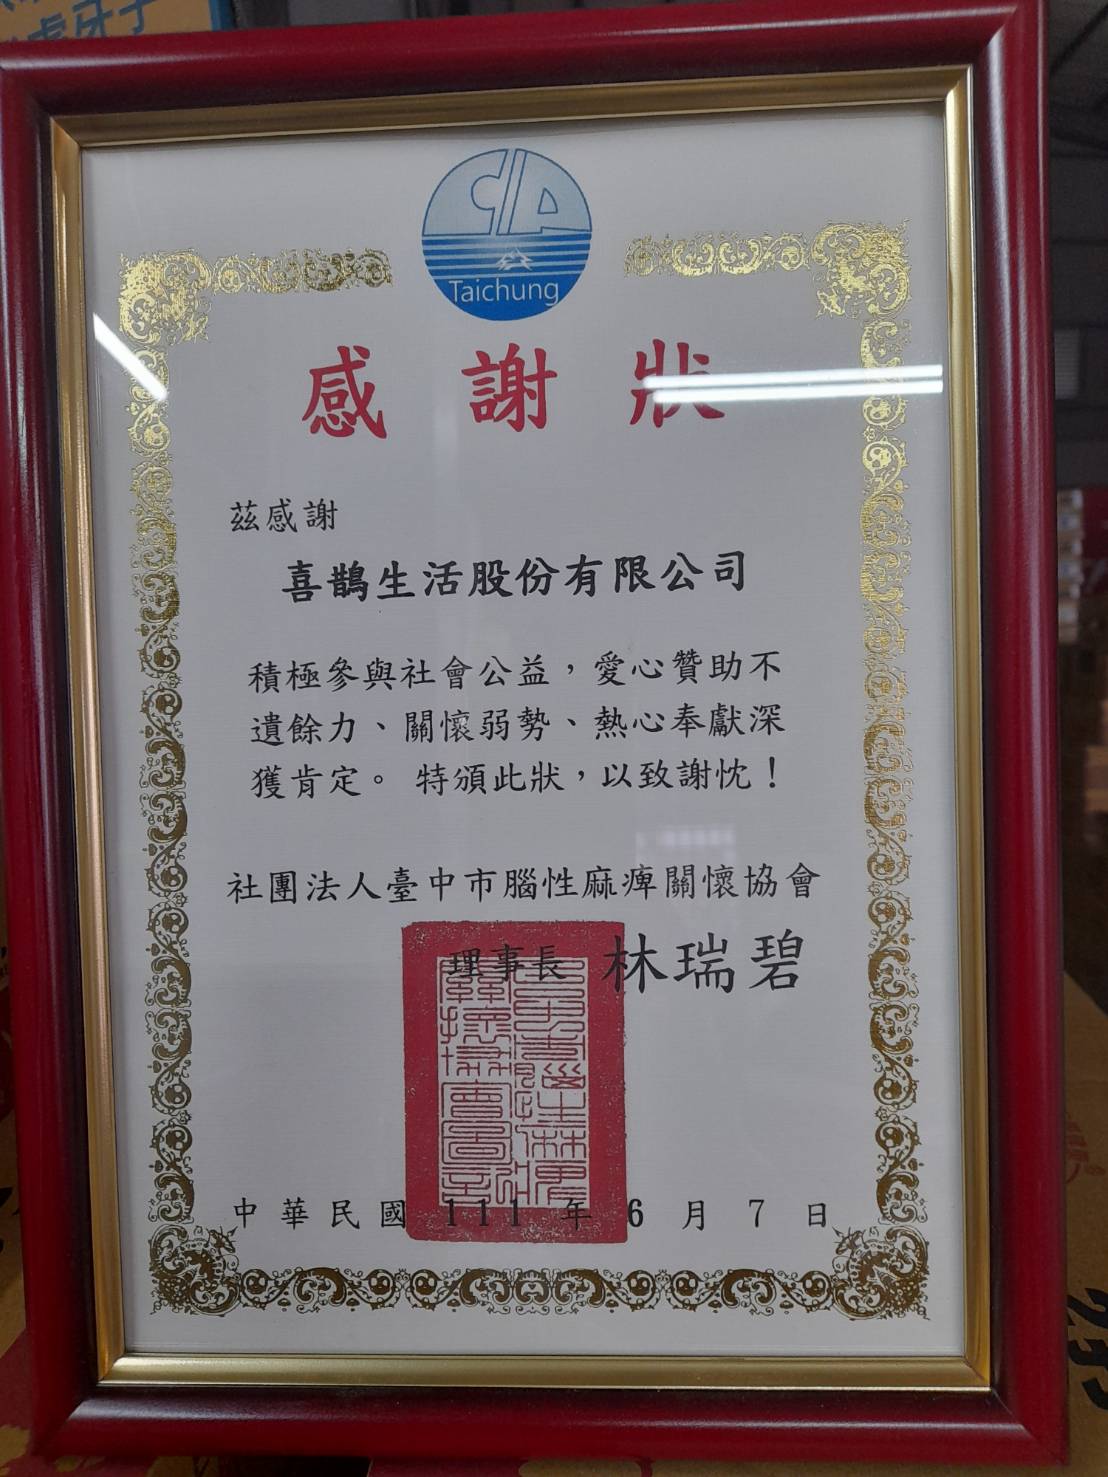 Taichung
感謝狀
茲感謝
喜鵲生活股份有限公司
積極參與社會公益，愛心贊助不
遺餘力、關懷弱勢、熱心奉獻深
獲肯定。 特頒此狀，以致謝忱！
社團法人臺中市腦性麻痺關懷協會
理事長 林瑞碧
中華民國 111 年 6 月 7 日